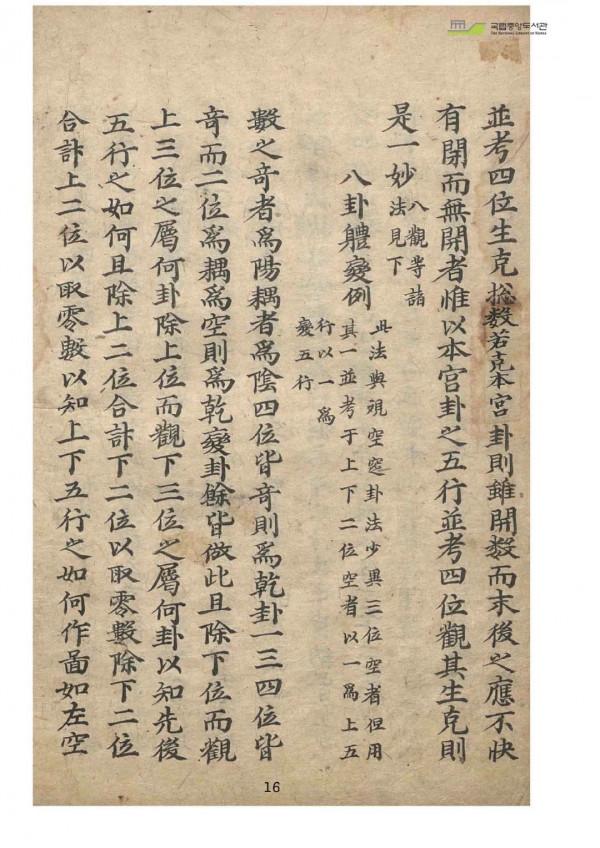 국립중앙도서관
THE NATIONAL LIBRARY OF KOREA
並考四位生克摠数若克本宮卦則雖開数而末後之應不快
有開而無開者惟以本宮卦之五行並考四位觀其生克則
是一妙法見下八觀等詰
八卦軆變例
此法與視空窓卦法少異三位空者但用
其一並考于上下二位空者以一爲上五
行以一爲
變五行
數之竒者爲陽耦者爲陰四位皆竒則爲乾卦一三四位皆
竒而二位爲耦爲空則爲乾變卦餘皆倣此且除下位而觀
上三位之屬何卦除上位而觀下三位之屬何卦以知先後
五行之如何且除上二位合計下二位以取零數除下二位
合計上二位以取零數以知上下五行之如何作啚如左空
16